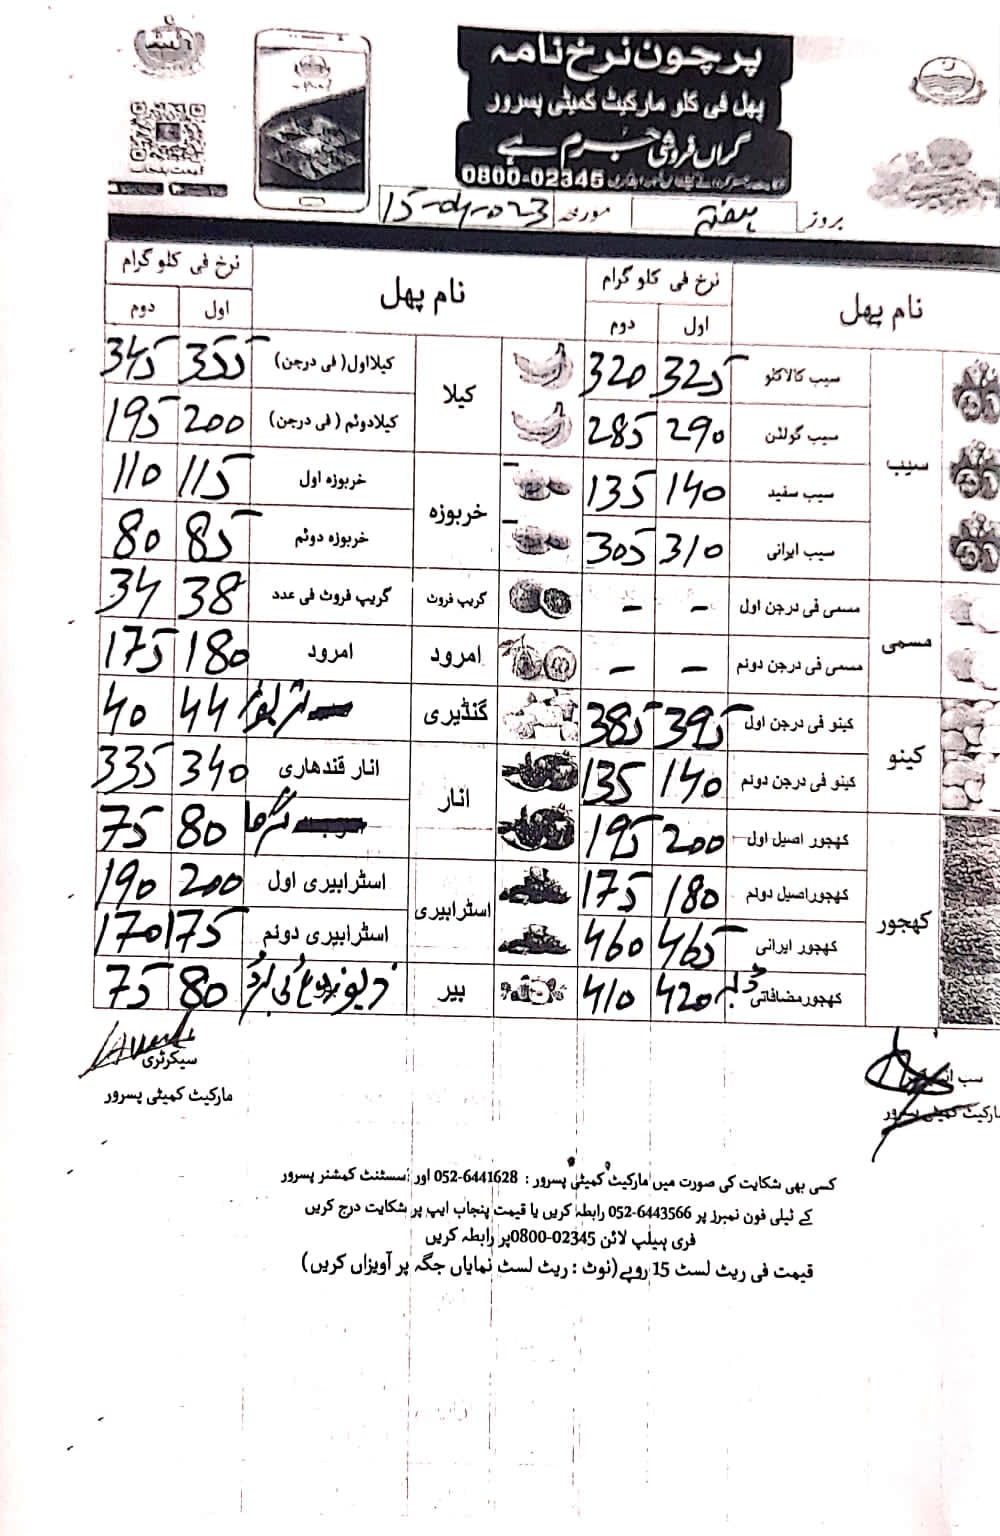 پرچون نرخ نامہ
پھل فی کلو مارکیٹ کمیٹی پسرور
گراں فروشی جرم ہے
0800-02345
بروز ہفتہ مورخہ 15-04-023
نام پھل نرخ فی کلو گرام نام پھل نرخ فی کلو گرام
اول دوم اول دوم
سیب
سیب کالاکلو 325 320
سیب گولڈن 290 285
سیب سفید 140 135
سیب ایرانی 310 305
مسمی
مسمی فی درجن اول - -
مسمی فی درجن دوئم - -
کینو
کینو فی درجن اول 395 385
کینو فی درجن دوئم 140 135
کھجور
کھجور اصیل اول 200 195
کھجور اصیل دوئم 180 175
کھجور ایرانی 465 460
کھجور مضافاتی ڈبہ 420 410
کیلا
کیلا اول (فی درجن) 355 345
کیلا دوئم (فی درجن) 200 195
خربوزہ
خربوزہ اول 115 110
خربوزہ دوئم 85 80
گریپ فروٹ
گریپ فروٹ فی عدد 38 34
امرود
امرود 180 175
گنڈیری
تربوز 44 40
انار
انار قندھاری 340 335
گرما 80 75
اسٹرابیری
اسٹرابیری اول 200 190
اسٹرابیری دوئم 175 170
بیر
80 75
سیکرٹری
مارکیٹ کمیٹی پسرور
سب
مارکیٹ کمیٹی پسرور
کسی بھی شکایت کی صورت میں مارکیٹ کمیٹی پسرور : 052-6441628 اور اسسٹنٹ کمشنر پسرور
کے ٹیلی فون نمبرز پر 052-6443566 رابطہ کریں یا قیمت پنجاب ایپ پر شکایت درج کریں
فری ہیلپ لائن 02345-0800پر رابطہ کریں
قیمت فی ریٹ لسٹ 15 روپے (نوٹ : ریٹ لسٹ نمایاں جگہ پر آویزاں کریں)